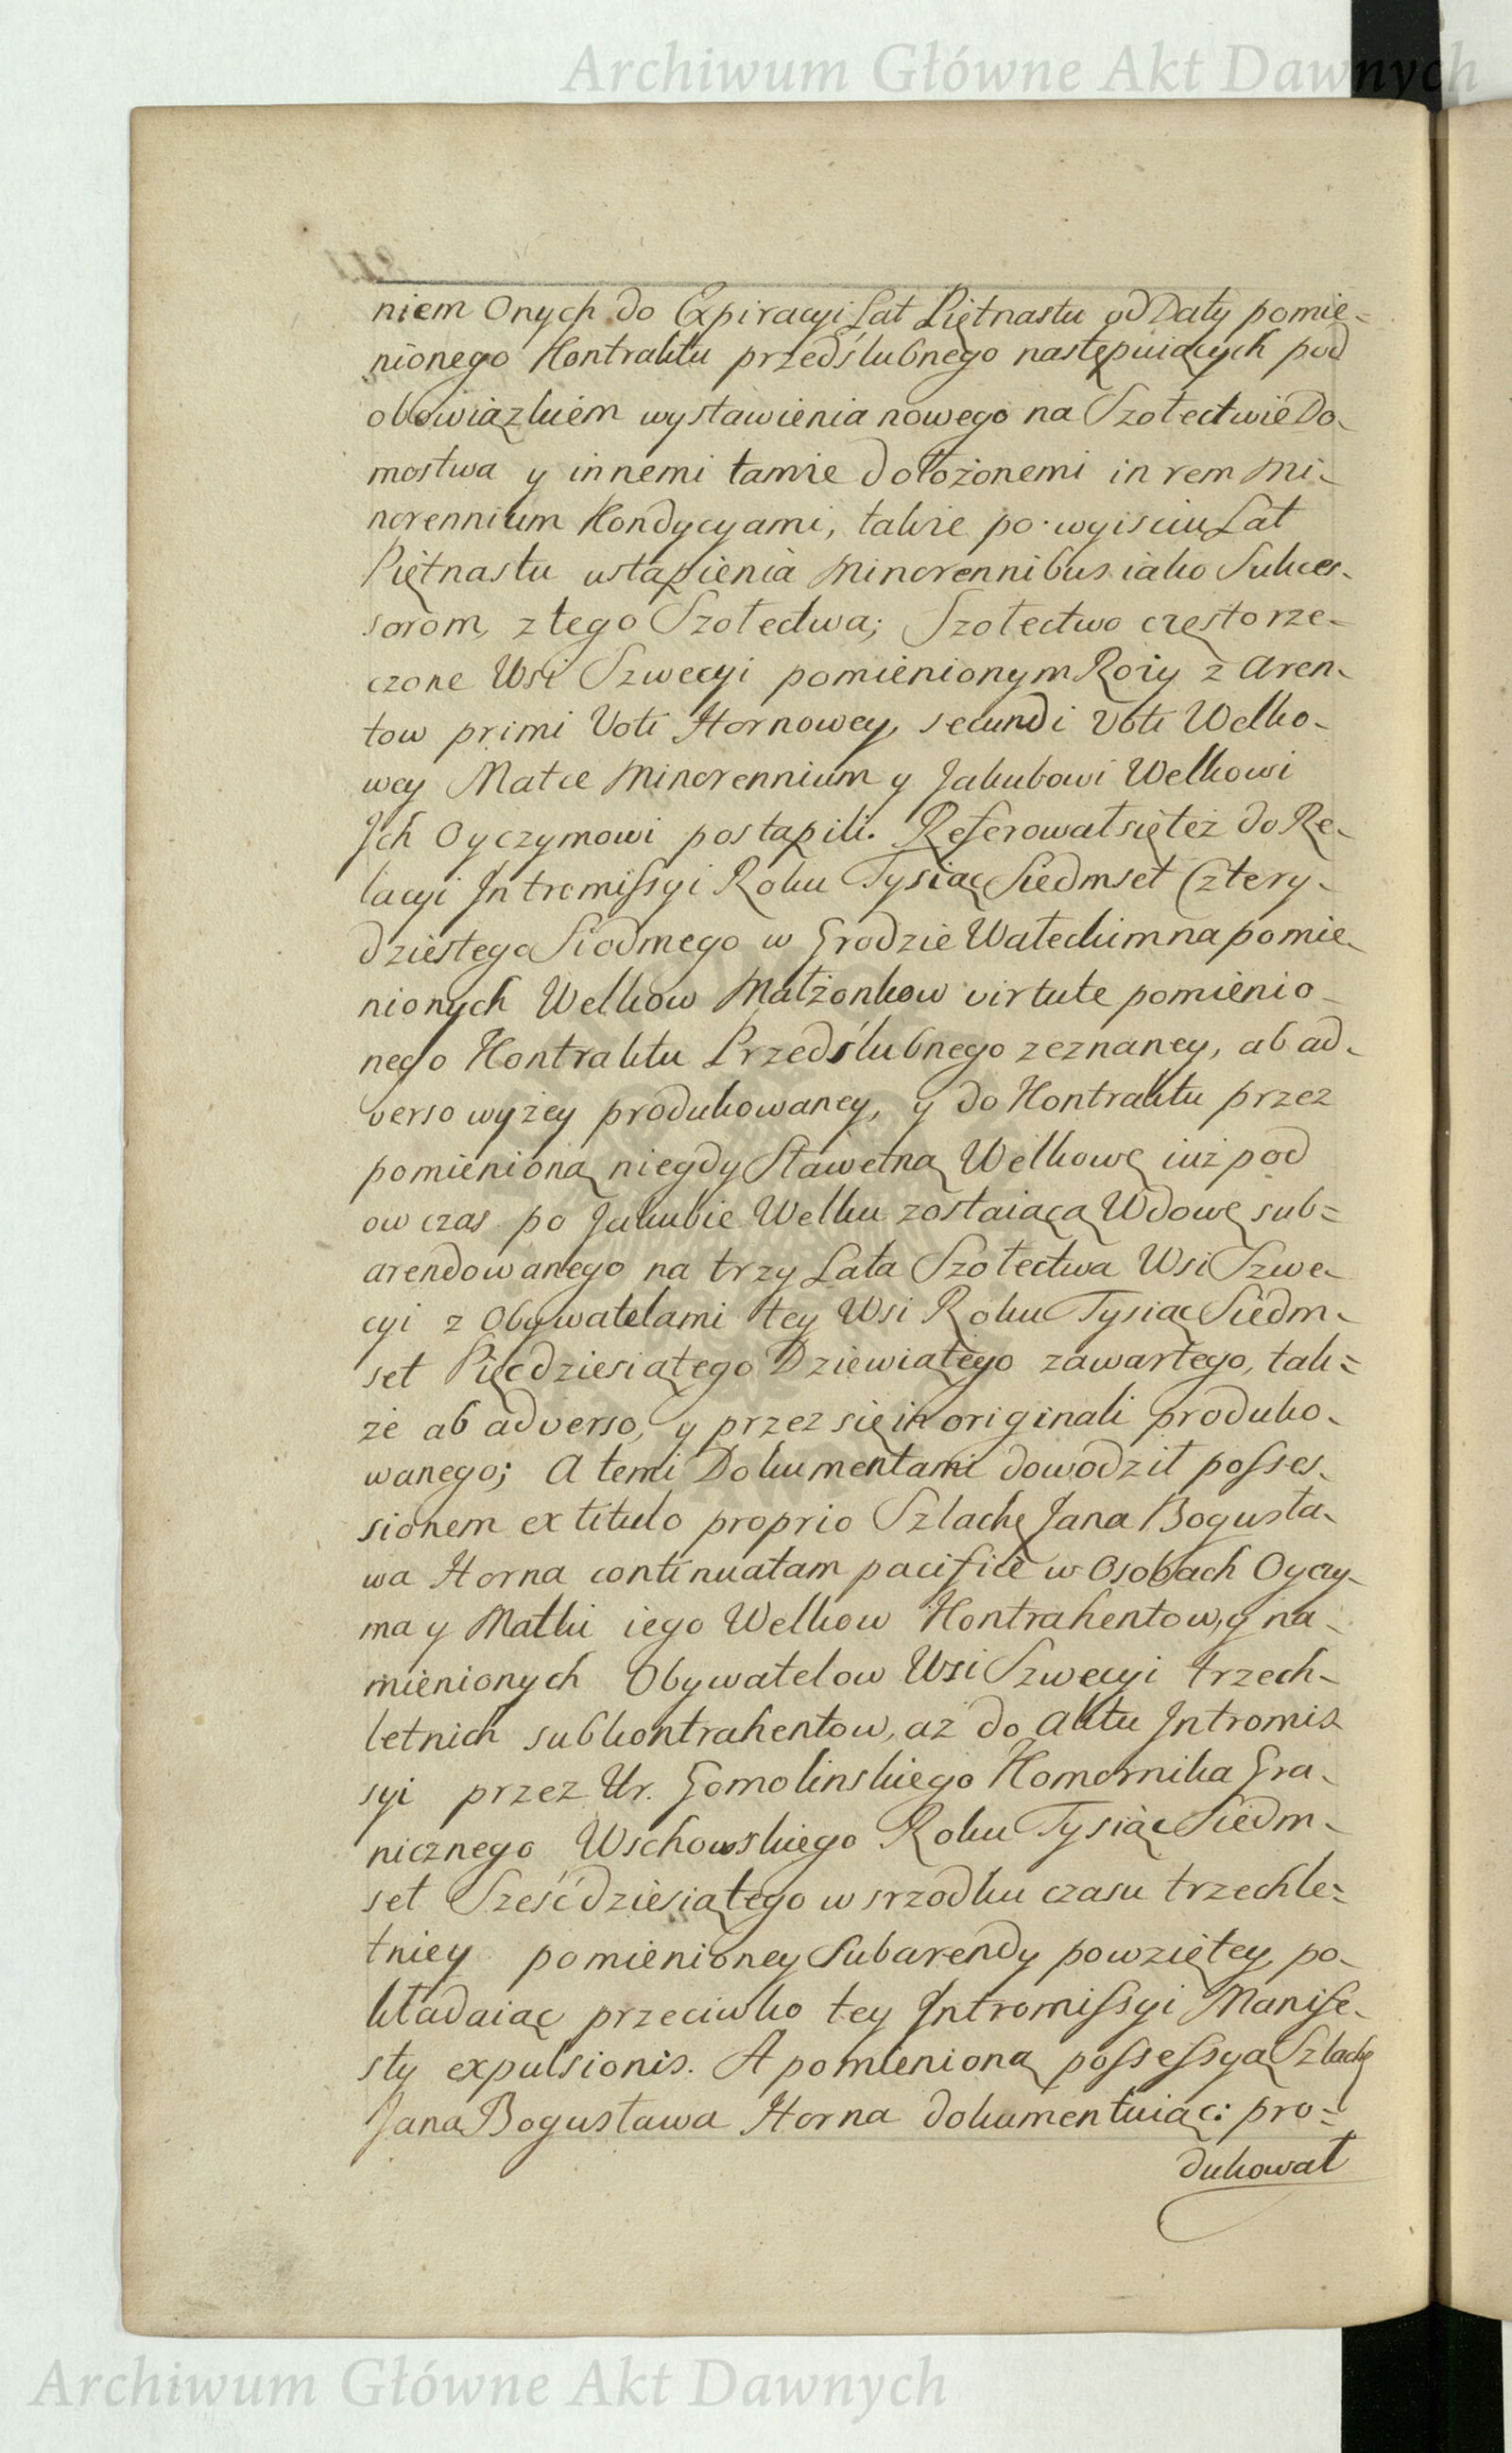 Archiwum Główne Akt Dawnych
niem Onych do Expiracyi Lat Piętnastu od Daty pomie-
nionego Kontraktu przedślubnego następuiących pod
obowiązkiem wystawienia nowego na Szołectwie Do-
mostwa y innemi tamże dołożonemi in rem Mi-
norennium Kondycyami, takie po wyisciu Lat
Piętnastu ustąpienia Minorennibus iako Sukces-
sorom, z tego Szołectwa; Szołectwo często rze-
czone Wsi Szwecyi pomienionym Roży z Aren-
tow primi Voti Hornowey, secundi Voti Welko-
wey Matce Minorennium y Jakubowi Welkowi
Jch Oyczymowi postąpili. Referował się też do Re-
lacyi Intromissyi Roku Tysiąc Siedmset Cztery-
dziestego Siodmego w Grodzie Wałeckim na pomie-
nionych Welkow Małżonkow virtute pomienio-
nego Kontraktu Przedślubnego zeznaney, ab ad-
verso wyżey produkowaney, y do Kontraktu przez
pomienioną niegdy Sławetną Welkowę iuż pod
ow czas po Jakubie Welku zostaiącą Wdowę sub=
arendowanego na trzy Lata Szołectwa Wsi Szwe-
cyi z Obywatelami tey Wsi Roku Tysiąc Siedm-
set Pięcdziesiątego Dziewiątego zawartego, tak=
że ab adverso, y przez się in originali produko-
wanego; A temi Dokumentami dowodził posses-
sionem ex titulo proprio Szlachę Jana Bogusła-
wa Horna continuatam pacifice w Osobach Oyczy-
ma y Matki iego Welkow Kontrahentow, y na-
mienionych Obywatelow Wsi Szwecyi trzech-
letnich subkontrahentow, aż do Aktu Intromis
syi przez Ur. Gomolinskiego Komornika Gra-
nicznego Wschowskiego Roku Tysiąc Siedm-
set Sześćdziesiątego w srzodku czasu trzechle=
tniey pomienioney Subarendy powziętey, po-
kładaiąc przeciwko tey Intromissyi Manife-
sty expulsionis. A pomienioną possessyą Szlachę
Jana Bogusława Horna dokumentuiąc: pro=
dukował
Archiwum Główne Akt Dawnych